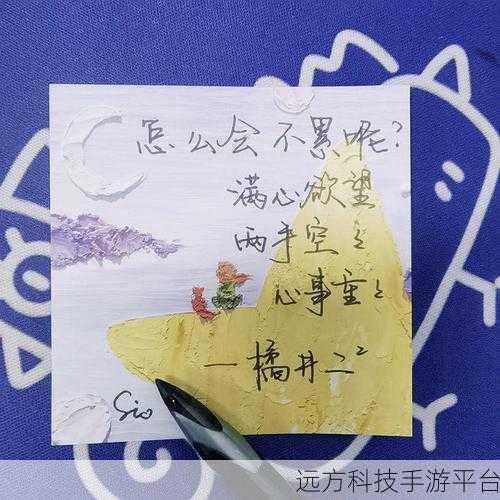 怎么会不累呢?
满心欲望
两手空々
心事重々
—橘井二²
Sio
远方科技手游平台